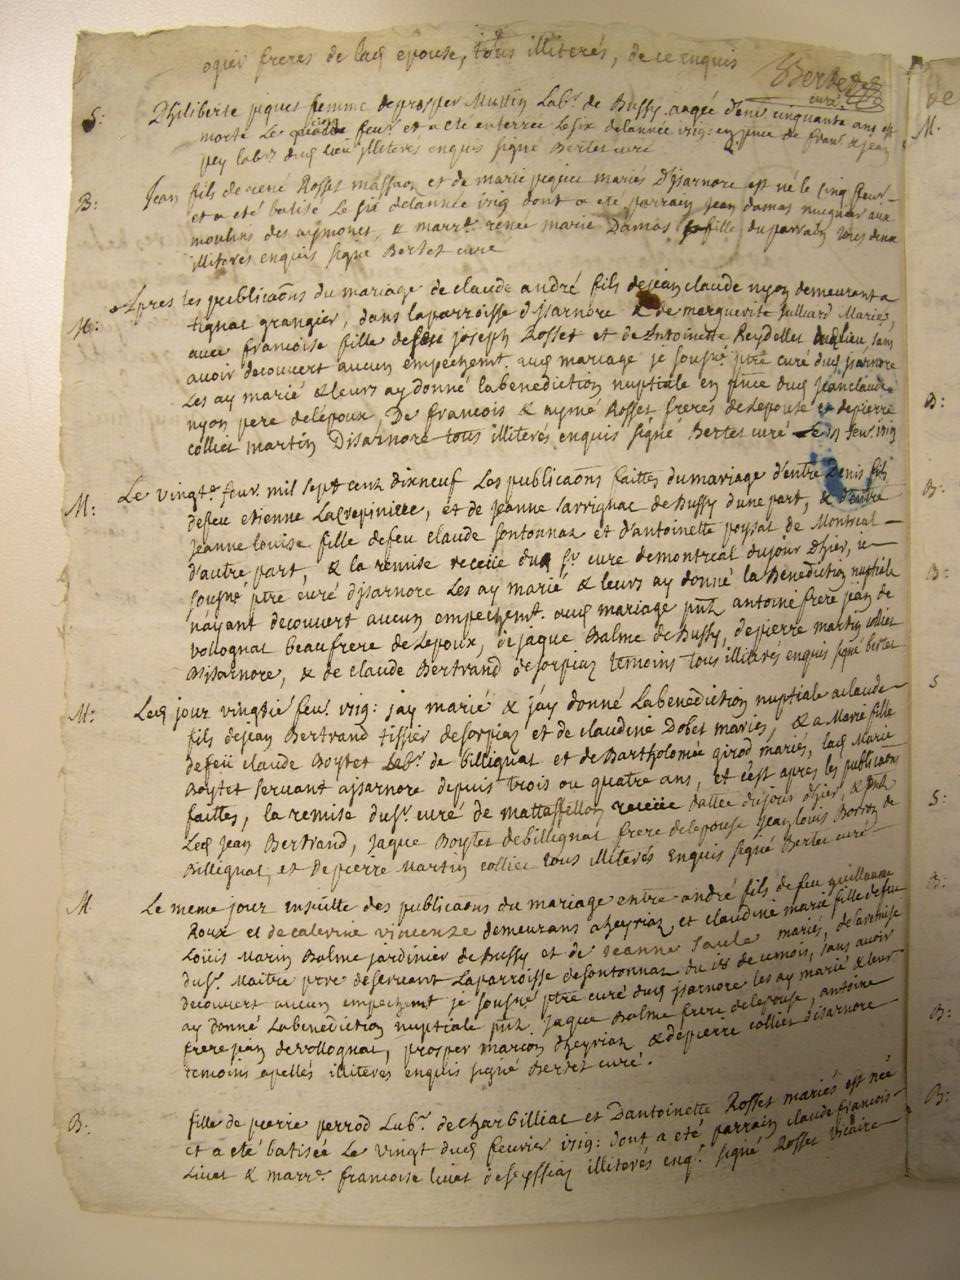 freres de lad epouse, tous illiterés, de ce enquis
Bertet
curé
S: Philiberte piquet femme de prosper Mussin Lab.r de Bussy aagée d'env cinquante ans est
morte Le feur et a eté enterrée Le six de lannée 1719: en pnce de Fran.s & jean
pey lab.rs dud lieu illiterés enquis signé Bertet curé
B: Jean fils de rené Rosset masson et de marie piquet mariés D'isarnore est né le cinq feur
et a eté batisé Le six de lannée 1719 dont a eté parrain jean damas musnier aux
moulins des aymones, & marr.e renée marie Damas fille du parrain tous deux
illiterés enquis signé Bertet curé
M: Apres les publicaons du mariage de claude andré fils de jean claude nyon demeurant a
tignat grangier, dans la parroisse d'isarnore & de merguerite Julliard Mariés,
avec francoise fille de feu joseph Rosset et de Antoinette Reydellet dud lieu sans
avoir decouvert aucun empechem.t aud mariage je sousné ptre curé dud isarnore
Les ay marié & leurs ay donné la benediction nuptiale en pnce dud Jean claude
nyon pere de lépoux, De francois & aymé Rosset freres de Lepouse et de pierre
collier martin Disarnore tous illiterés enquis signé Bertet curé Le 17 feur 1719
M: Le vingt.e feur. mil sept cent dixneuf Les publicaons faittes du mariage d'entre Denis fils
de feu etienne Lacrepiniere, et de jeanne Sarrignat de Bussy d'une part, & d'entre
jeanne louise fille de feu claude fontannaz et d'antoinette poysat de Montreal
d'autre part, & la remise receüe dud s.r curé de montreal du jour d'hier, je
sousné ptre curé d'isarnore Les ay marié & leurs ay donné la Benediction nuptiale
n'ayant decouvert aucun empechem.t aud mariage pnts antoine frere jean de
vollognat beaufrere de Lepoux, de jaque Balme de Bussy, de pierre martin collier
D'isarnore, & de claude Bertrand de sorpiaz temoins tous illiterés enquis signé bertet
M: Led jour vingtié feu. 1719: jay marié & jay donné La benediction nuptiale a claude
fils de jean Bertrand tissier de sorpiaz et de claudine Dobet mariés, & a Marie fille
de feü claude Boytet Lab.r de billignat et de Bartholomée girod mariés, lad Marie
Boytet servant a isarnore depuis trois ou quatre ans, et c'est apres les publicaons
faittes, la remise du s.r curé de mattaffellon receüe dattée du jour d'hier, & pnts
Led Jean Bertrand, Jaque Boytet de billignat frere de lepouse Jean louis Borron de
Billignat, et de pierre Martin collier tous illiterés enquis signé Bertet curé
M Le meme jour ensuitte des publicaons du mariage entre andré fils de feu guillaume
Roux et de caterine vincenze demeurans a heyriaz, et claudine marie fille de feu
Loüis Marin Balme jardinier de Bussy et de jeanne Saule mariés, de la remise
du s.r Maitre ptre deservant La parroisse de sontonnaz du 18 de ce mois, sans avoir
decouvert aucun empechemt je sousné ptre curé dud isarnore les ay marié & leur
ay donné La benediction nuptiale pnts Jaque Balme frere de lepouse, antoine
frere jean de vollognat, prosper marcon d'heyriaz & de pierre collier disarnore
temoins apellés illiterés enquis signé Bertet curé.
B: fille de pierre perrod Lab.r de charbilliat et D'antoinette Rosset mariés est née
et a eté batisée Le vingt dud feuvrier 1719: dont a eté parrain claude francois
Livet & marr.e francoise livet illiterés enq.s signé Rosset vicaire
de
M.
B:
B:
B:
S
S:
B:
B:
B: